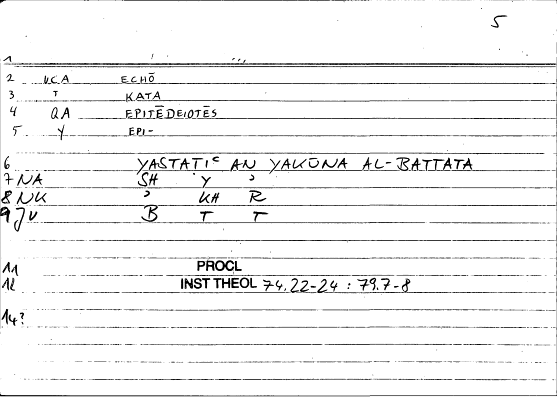 5
1
2 V.C.A ECHŌ
3 T KATA
4 QA EPITĒDEIOTĒS
5 Y EPI-
6 YASTATIᶜ AN YAKŪNA AL-BATTATA
7 NA SH Y ʾ
8 NK ʾ KH R
9 JV B T T
11 PROCL
12 INST THEOL 74.22-24 : 79.7-8
14?